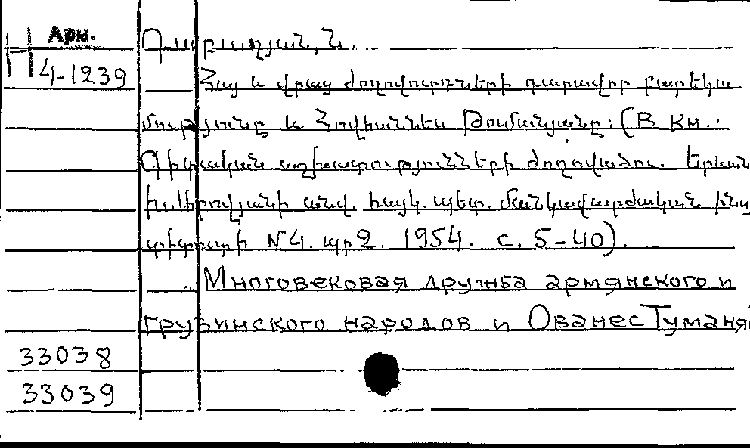 Арм.
Н 4-1239
Հայ և վրաց ժողովուրդների դարավոր բարեկա
մությունը և Հովհաննես Թումանյանը: (В кн.:
Գիտական աշխատությունների ժողովածու. Երևան
խ.Աբովյանի անվ. հայկ. պետ. մանկավարժական ինս
տիտուտի №4. պր 2. 1954. с. 5-40).
Многовековая дружба армянского и
грузинского народов и Ованес Туманя
33038
33039